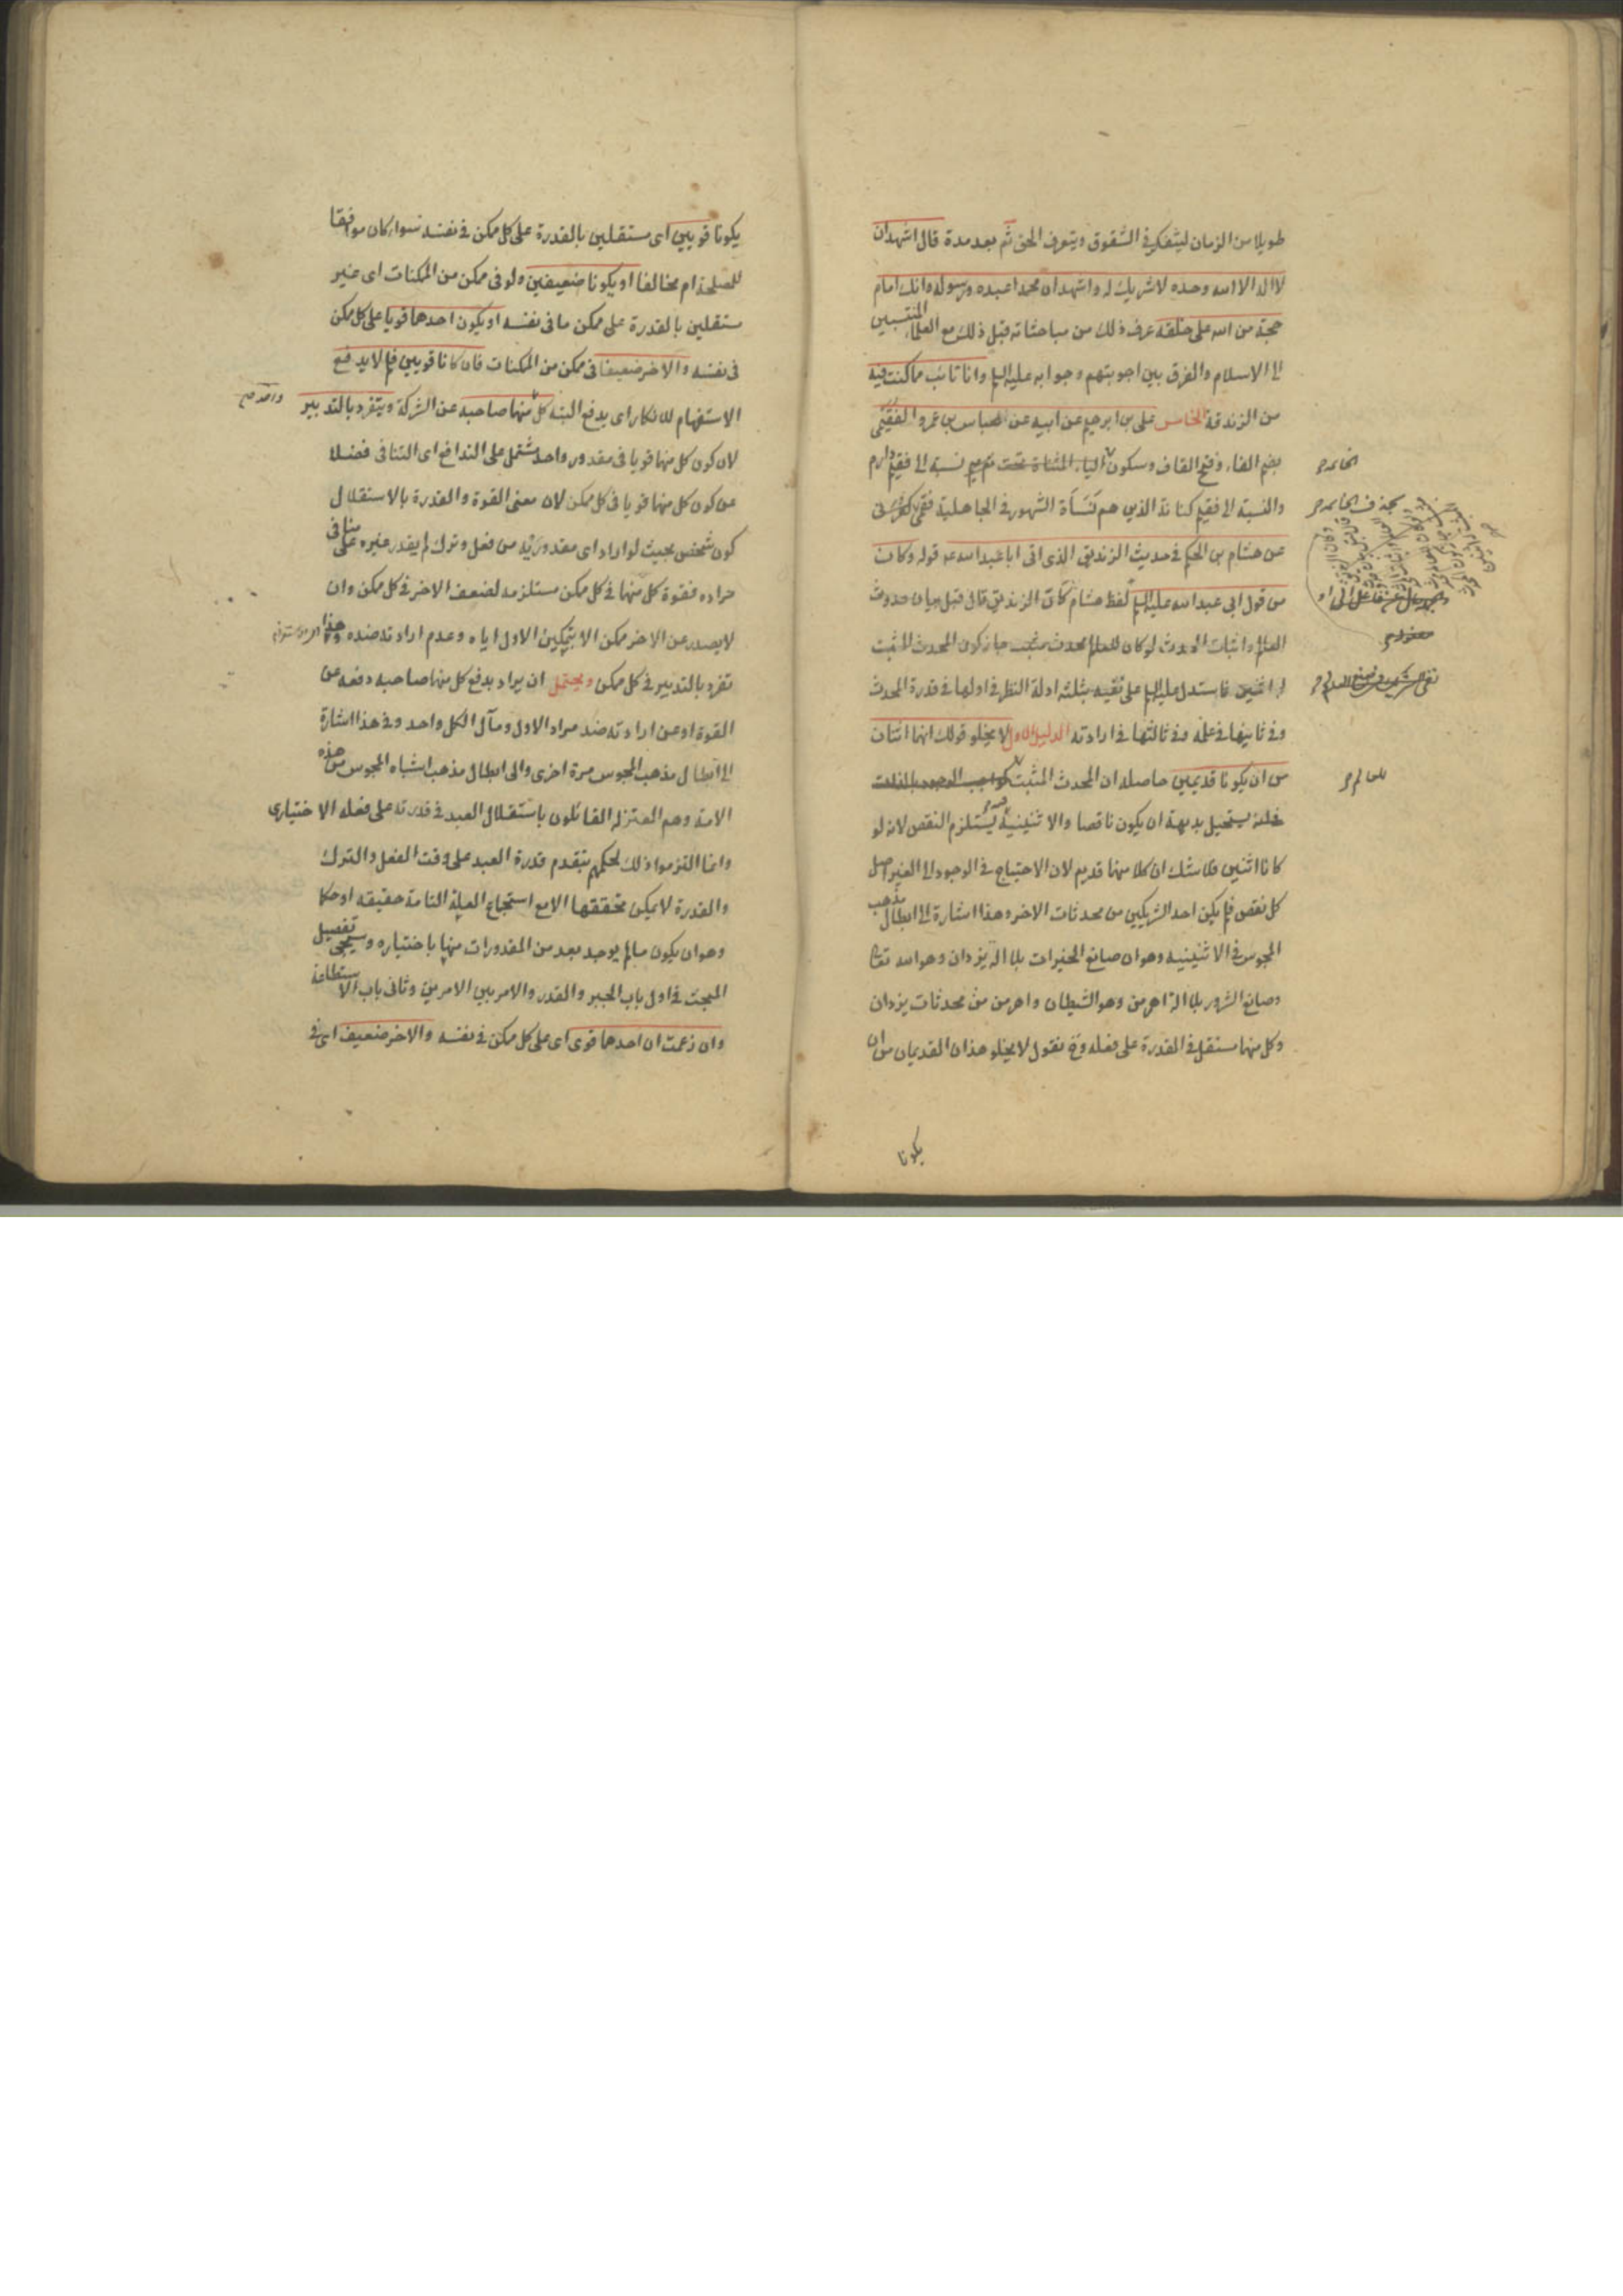 طويلا من الزمان ليتفكر في الشقوق ويتعرف الحق ثم بعد مدة قال اشهد ان
لا اله الا الله وحده لا شريك له واشهد ان محمدا عبده ورسوله وانك امام
حجة من الله على خلقه عرف ذلك من مباحثاته قبل ذلك مع العلماء المنتسبين
الى الاسلام والفرق بين اجوبتهم وجوابه عليه السلم وانا تائب مما كنت فيه
من الزندقة الخامس على بن ابرهيم عن ابيه عن العباس بن عمرو الفقيمى
بضم الفاء وفتح القاف وسكون الياء المثناة تحت نسبة الى فقيم دارم
والنسبة الى فقيم كنانة الذين هم نسأة الشهور في الجاهلية فقمى كعرنى
عن هشام بن الحكم في حديث الزنديق الذى اتى ابا عبد الله عه قوله وكان
من قول ابى عبد الله عليه السلم لفظ هشام كان الزنديق قال قبل بيان حدوث
العالم واثبات المحدث لو كان للعالم محدث مثبت جاز كون المحدث المثبت
له اثنين فاستدل عليه السلم على نفيه بثلثة ادلة النظر في اولها في قدرة المحدث
وفي ثانيها في علمه وفي ثالثها في ارادته الدليل الاول لا يخلو قولك انهما اثنان
من ان يكونا قديمين حاصله ان المحدث المثبت كواجب الوجود بالذات
يستحيل بديهة ان يكون ناقصا والاثنينية يستلزم النقص لانه لو
كانا اثنين فلا شك ان كلا منهما قديم لان الاحتياج في الوجود الى الغير اصل
كل نقص فلم يكن احد الشريكين من محدثات الاخر وهذا اشارة الى ابطال مذهب
المجوس في الاثنينية وهو ان صانع الخيرات بلا آلة يزدان وهو الله تعالى
وصانع الشرور بلا آلة اهرمن وهو الشيطان واهرمن من محدثات يزدان
وكل منهما مستقل في القدرة على فعله وح نقول لا يخلو هذان القديمان من ان
يكونا
يكونا قويين اى مستقلين بالقدرة على كل ممكن في نفسه سواء كان موافقا
للمصلحة ام مخالفا او يكونا ضعيفين ولو في ممكن من الممكنات اى غير
مستقلين بالقدرة على ممكن ما في نفسه او يكون احدهما قويا على كل ممكن
في نفسه والاخر ضعيفا في ممكن من الممكنات فان كانا قويين فلم لا يدفع
الاستفهام للانكار اى يدفع البتة كل منهما صاحبه عن الشركة ويتفرد بالتدبير
لان كون كل منهما قويا في مقدور واحد مشتمل على التدافع اى التنافى فضلا
عن كون كل منهما قويا في كل ممكن لان معنى القوة والقدرة بالاستقلال
كون شخص بحيث لو اراد اى مقدوريه من فعل وترك لم يقدر غيره على منافى
مراده فقوة كل منهما في كل ممكن مستلزمه لضعف الاخر في كل ممكن وان
لا يصدر عن الاخر ممكن الا بتمكين الاول اياه وعدم ارادته ضده وهذا
تفرد بالتدبير في كل ممكن ويحتمل ان يراد بدفع كل منهما صاحبه دفعه عن
القوة او عن ارادته ضد مراد الاول ومآل الكل واحد وفي هذا اشارة
الى ابطال مذهب المجوس مرة اخرى والى ابطال مذهب اشباه المجوس من هذه
الامة وهم المعتزلة القائلون باستقلال العبد في قدرته على فعله الاختيارى
وانما التزموا ذلك لحكمهم بتقدم قدرة العبد على وقت الفعل والترك
والقدرة لا يمكن تحققها الا مع استجماع العلة التامة حقيقة او حكما
وهو ان يكون ما لم يوجد بعد من المقدورات منها باختياره وسيجئ تفصيل
المبحث في اول باب الجبر والقدر والامر بين الامرين وثانى باب الاستطاعة
وان زعمت ان احدهما قوى اى على كل ممكن في نفسه والاخر ضعيف اى في